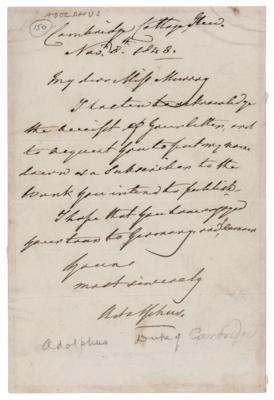 ADOLPHUS
150
Cambridge Cottage, Kew.
Novr. 8th 1848.
My dear Miss Murray
I hasten to acknowledge
the receipt of Your letter, and
to request You to put my name
down as a Subscriber to the
Work You intend to publish.
I hope that You have enjoyed
Your tour to Germany and remain
Yours
most sincerely
Adolphus.
Adolphus Duke of Cambridge